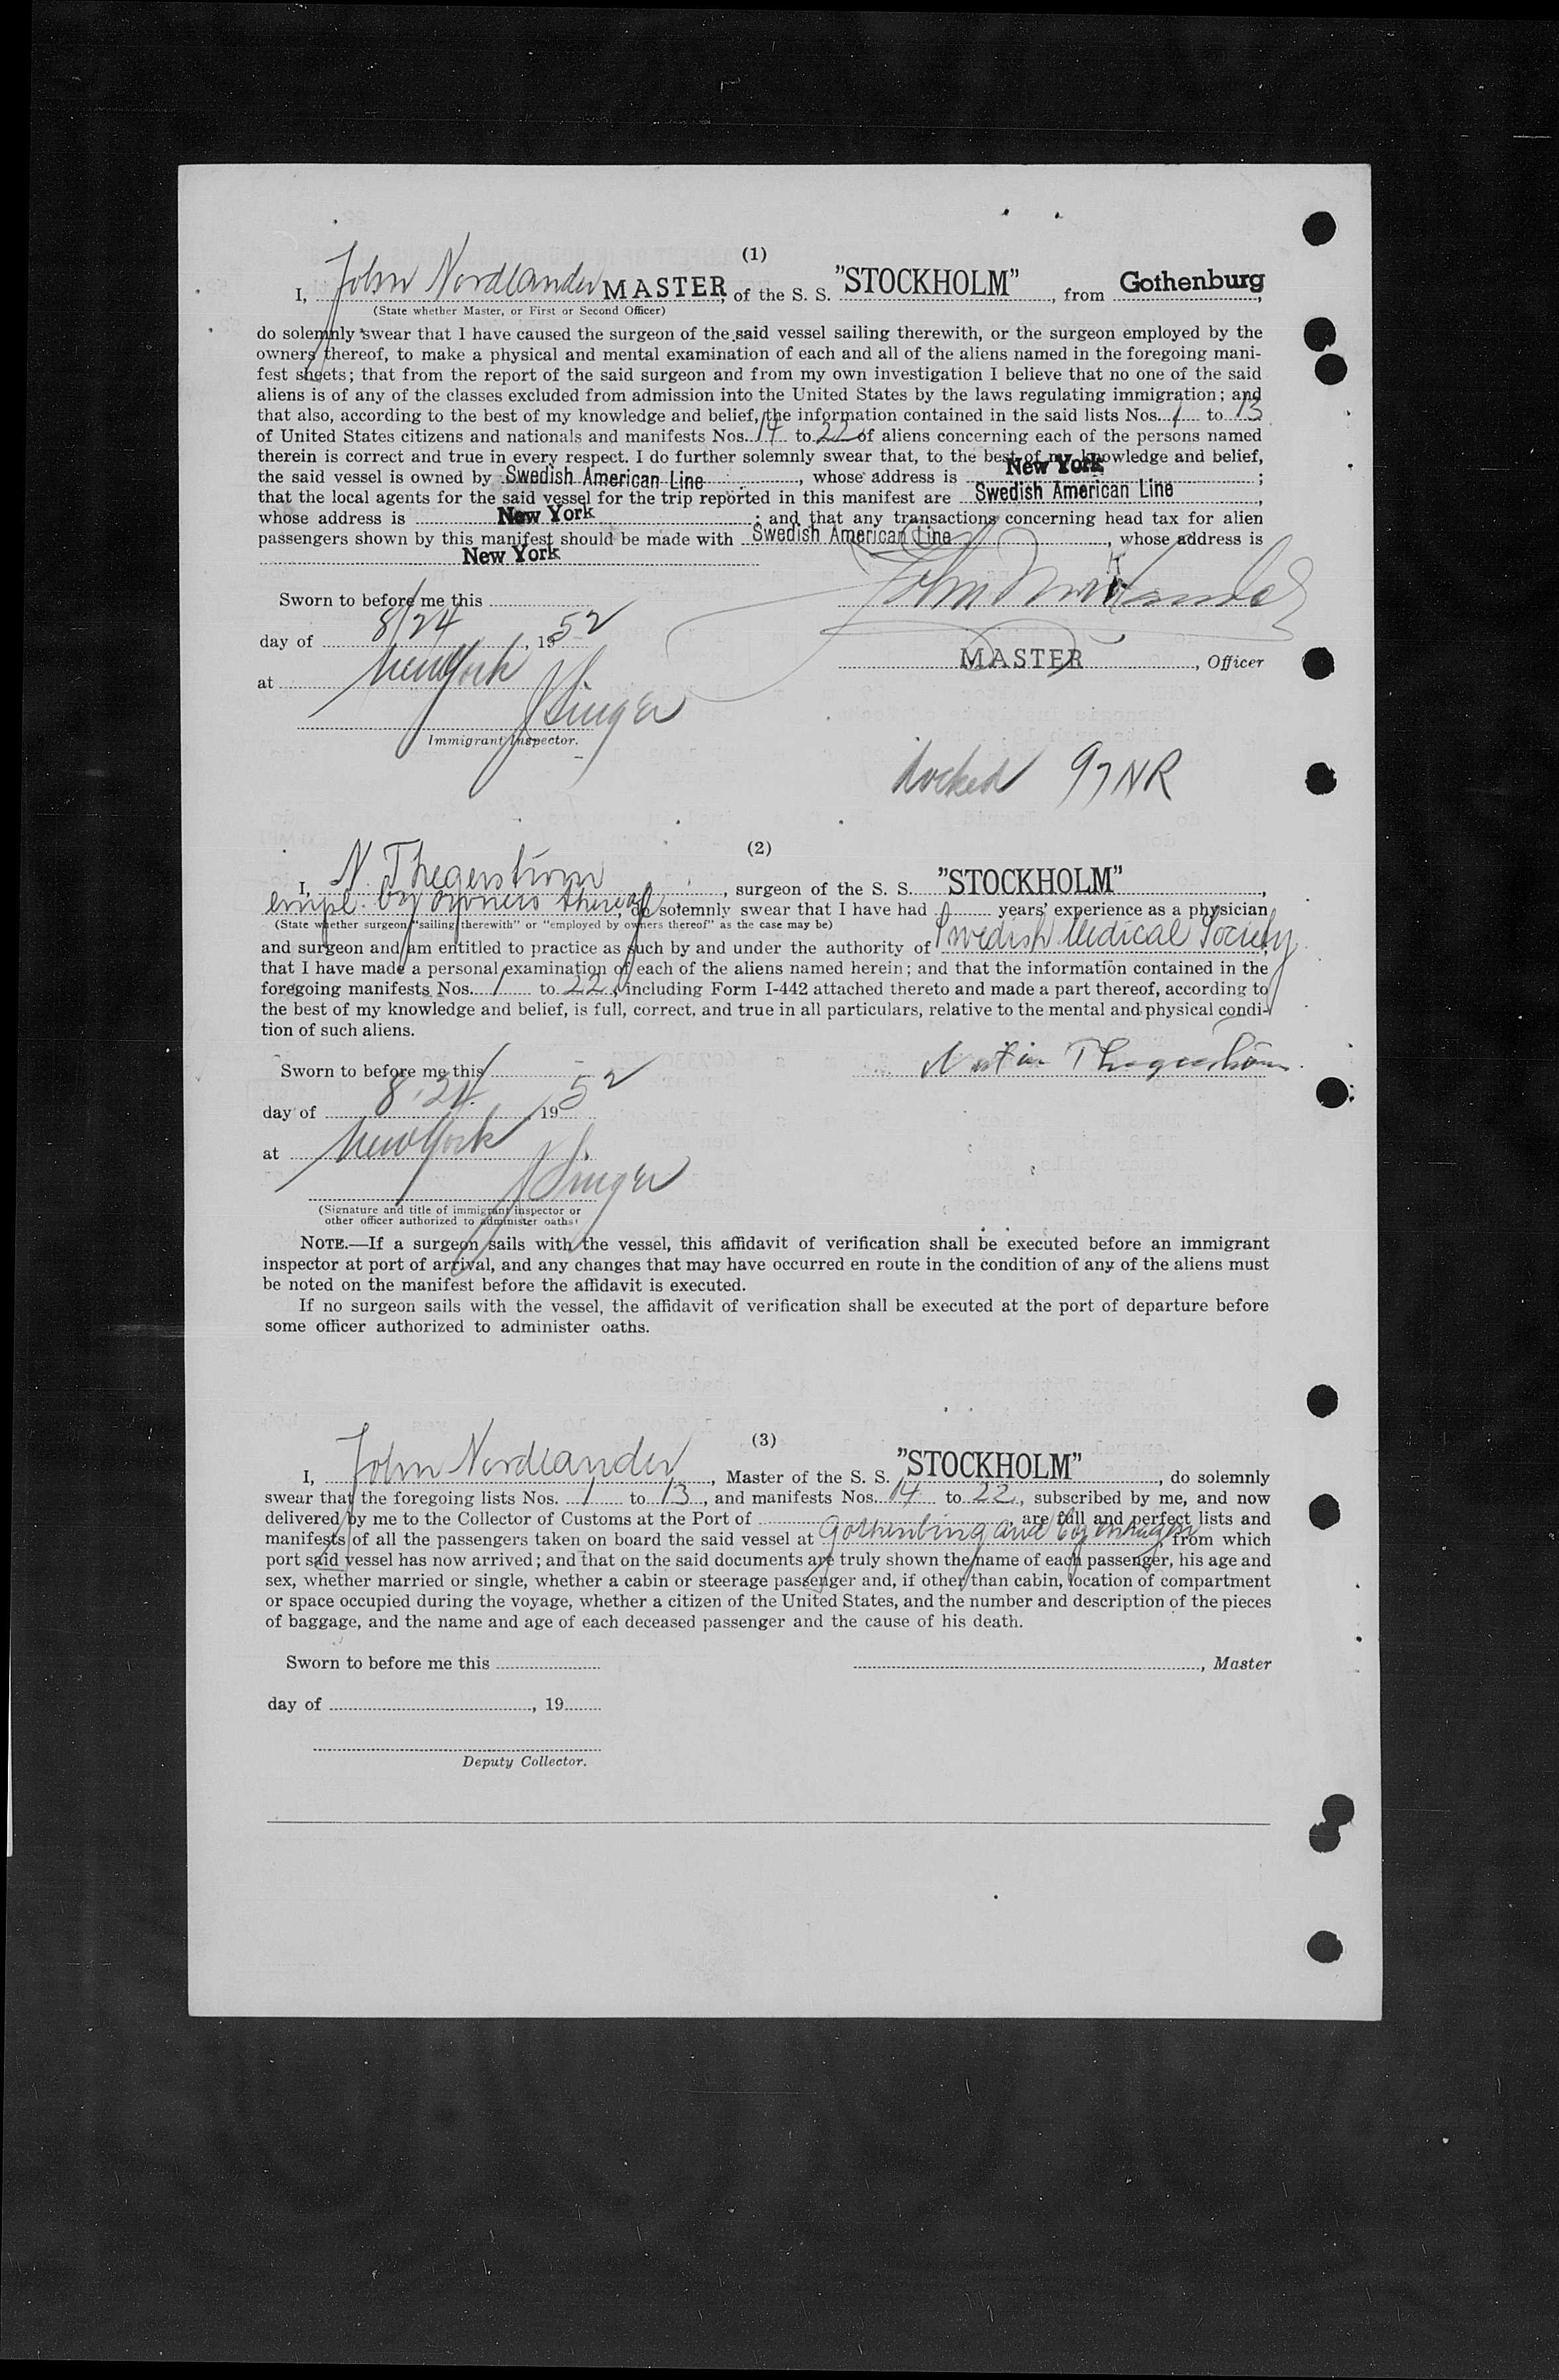 (1)
I, John Nordlander MASTER, of the S. S. "STOCKHOLM", from Gothenburg,
(State whether Master, or First or Second Officer)
do solemnly swear that I have caused the surgeon of the said vessel sailing therewith, or the surgeon employed by the
owners thereof, to make a physical and mental examination of each and all of the aliens named in the foregoing mani-
fest sheets; that from the report of the said surgeon and from my own investigation I believe that no one of the said
aliens is of any of the classes excluded from admission into the United States by the laws regulating immigration; and
that also, according to the best of my knowledge and belief, the information contained in the said lists Nos. 1 to 13
of United States citizens and nationals and manifests Nos. 14 to 22 of aliens concerning each of the persons named
therein is correct and true in every respect. I do further solemnly swear that, to the best of my knowledge and belief,
the said vessel is owned by Swedish American Line, whose address is New York;
that the local agents for the said vessel for the trip reported in this manifest are Swedish American Line,
whose address is New York; and that any transactions concerning head tax for alien
passengers shown by this manifest should be made with Swedish American Line, whose address is
New York
Sworn to before me this
John Nordlander
day of 8/24, 1952
MASTER, Officer
at New York
J Singer
Immigrant Inspector.
Docked 97 NR
(2)
I, N. Thegerström, surgeon of the S. S. "STOCKHOLM",
empl. by owners thereof, do solemnly swear that I have had years' experience as a physician
(State whether surgeon "sailing therewith" or "employed by owners thereof" as the case may be)
and surgeon and am entitled to practice as such by and under the authority of Swedish Medical Society,
that I have made a personal examination of each of the aliens named herein; and that the information contained in the
foregoing manifests Nos. 1 to 22, including Form I-442 attached thereto and made a part thereof, according to
the best of my knowledge and belief, is full, correct, and true in all particulars, relative to the mental and physical condi-
tion of such aliens.
Sworn to before me this
Thegerström
day of 8.24. 1952
at New York
J Singer
(Signature and title of immigrant inspector or
other officer authorized to administer oaths)
NOTE.—If a surgeon sails with the vessel, this affidavit of verification shall be executed before an immigrant
inspector at port of arrival, and any changes that may have occurred en route in the condition of any of the aliens must
be noted on the manifest before the affidavit is executed.
If no surgeon sails with the vessel, the affidavit of verification shall be executed at the port of departure before
some officer authorized to administer oaths.
(3)
I, John Nordlander, Master of the S. S. "STOCKHOLM", do solemnly
swear that the foregoing lists Nos. 1 to 13, and manifests Nos. 14 to 22, subscribed by me, and now
delivered by me to the Collector of Customs at the Port of , are full and perfect lists and
manifests of all the passengers taken on board the said vessel at Gothenburg and Copenhagen, from which
port said vessel has now arrived; and that on the said documents are truly shown the name of each passenger, his age and
sex, whether married or single, whether a cabin or steerage passenger and, if other than cabin, location of compartment
or space occupied during the voyage, whether a citizen of the United States, and the number and description of the pieces
of baggage, and the name and age of each deceased passenger and the cause of his death.
Sworn to before me this
, Master
day of , 19
Deputy Collector.